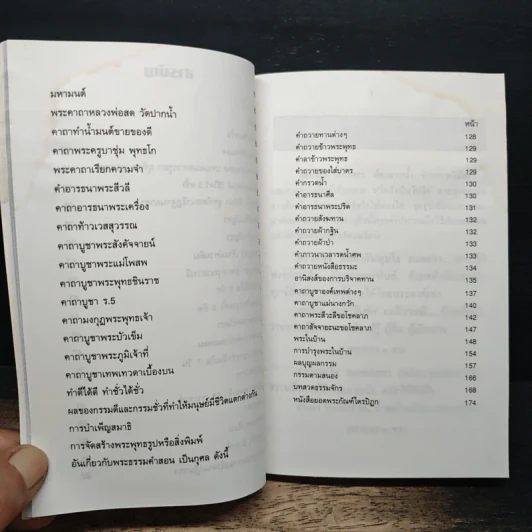 มหามนต์
พระคาถาหลวงพ่อสด วัดปากน้ำ
คาถาทำน้ำมนต์ขายของดี
คาถาพระครูบาชุ่ม พุทธโก
พระคาถาเรียกความจำ
คำอาราธนาพระสีวลี
คาถาอาราธนาพระเครื่อง
คาถาท้าวเวสสุวรรณ
คาถาบูชาพระสังคัจจายน์
คาถาบูชาพระแม่โพสพ
คาถาบูชาพระพุทธชินราช
คาถาบูชา ร.5
คาถามงกุฎพระพุทธเจ้า
คาถาบูชาพระบัวเข็ม
คาถาบูชาพระภูมิเจ้าที่
คาถาบูชาเทพเทวดาเบื้องบน
ทำดีได้ดี ทำชั่วได้ชั่ว
ผลของกรรมดีและกรรมชั่วที่ทำให้มนุษย์มีชีวิตแตกต่างกัน
การบำเพ็ญสมาธิ
การจัดสร้างพระพุทธรูปหรือสิ่งพิมพ์
อันเกี่ยวกับพระธรรมคำสอน เป็นกุศล ดังนี้
หน้า
คำถวายทานต่างๆ 128
คำถวายข้าวพระพุทธ 129
คำลาข้าวพระพุทธ 129
คำถวายของใส่บาตร 129
คำกรวดน้ำ 130
คำอาราธนาศีล 130
คำอาราธนาพระปริต 131
คำถวายสังฆทาน 132
คำถวายผ้ากฐิน 132
คำถวายผ้าป่า 133
คำภาวนาเวลารดน้ำศพ 133
คำถวายหนังสือธรรมะ 134
อานิสงส์ของการบริจาคทาน 135
คาถาบูชาองค์เทพต่างๆ 137
คาถาบูชาแม่นางกวัก 140
คาถาพระสีวะลีขอโชคลาภ 142
คาถาสัจจายะนะขอโชคลาภ 147
พระในบ้าน 148
การบำรุงพระในบ้าน 154
ผลบุญผลกรรม 157
กรรมตามสนอง 166
บทสวดธรรมจักร 168
หนังสือยอดพระกัณฑ์ไตรปิฎก 174